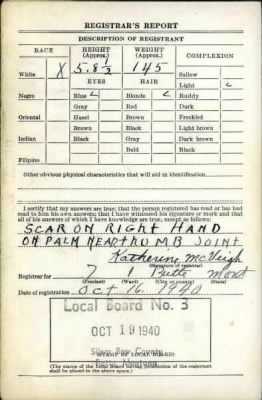 REGISTRAR'S REPORT
DESCRIPTION OF REGISTRANT
RACE
HEIGHT
(Approx.)
WEIGHT
(Approx.)
COMPLEXION
White X
5.8 1/2
145
Sallow
EYES
HAIR
Light
Negro
Blue
Blonde
Ruddy
Gray
Red
Dark
Oriental
Hazel
Brown
Freckled
Brown
Black
Light brown
Indian
Black
Gray
Dark brown
Bald
Black
Filipino
Other obvious physical characteristics that will aid in identification
I certify that my answers are true; that the person registered has read or has had
read to him his own answers; that I have witnessed his signature or mark and that
all of his answers of which I have knowledge are true, except as follows:
SCAR ON RIGHT HAND
ON PALM NEAR THUMB JOINT
Katherine McVeigh
(Signature of registrar)
Registrar for 7 1 Butte Mont
(Precinct) (Ward) (City or county) (State)
Date of registration Oct 16, 1940
Local Board No. 3
OCT 19 1940
Silver Bow County
(STAMP OF LOCAL BOARD)
Butte, Montana
(The stamp of the Local Board having jurisdiction of the registrant
shall be placed in the above space.)